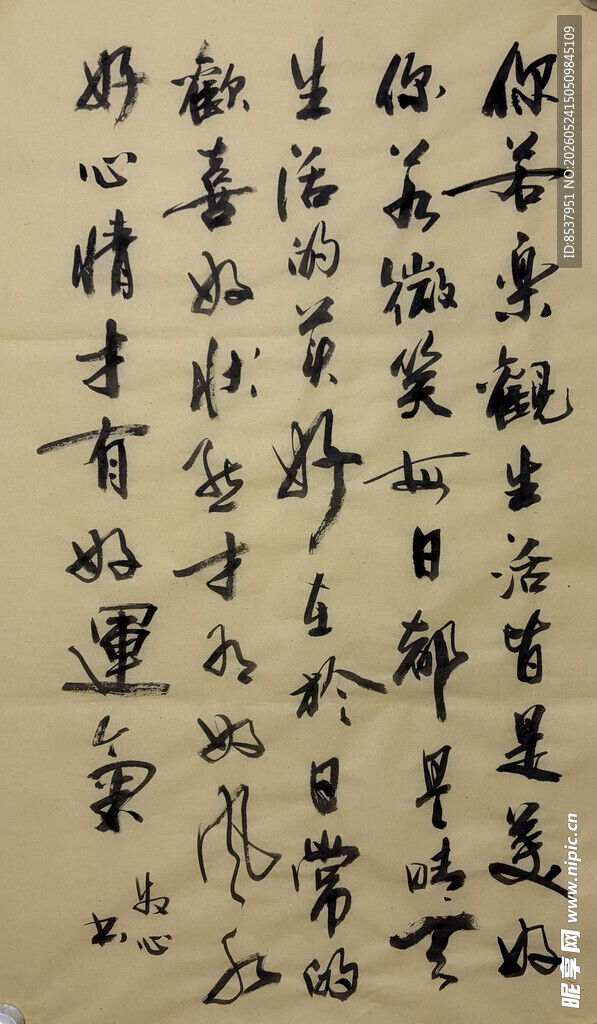 你若樂觀生活皆是美好
你若微笑每日都是晴天
生活的美好在於日常的
歡喜好狀态才有好風水
好心情才有好運氣
心
书
ID:8537951 NO:20260524150509845109
昵享网 www.nipic.cn